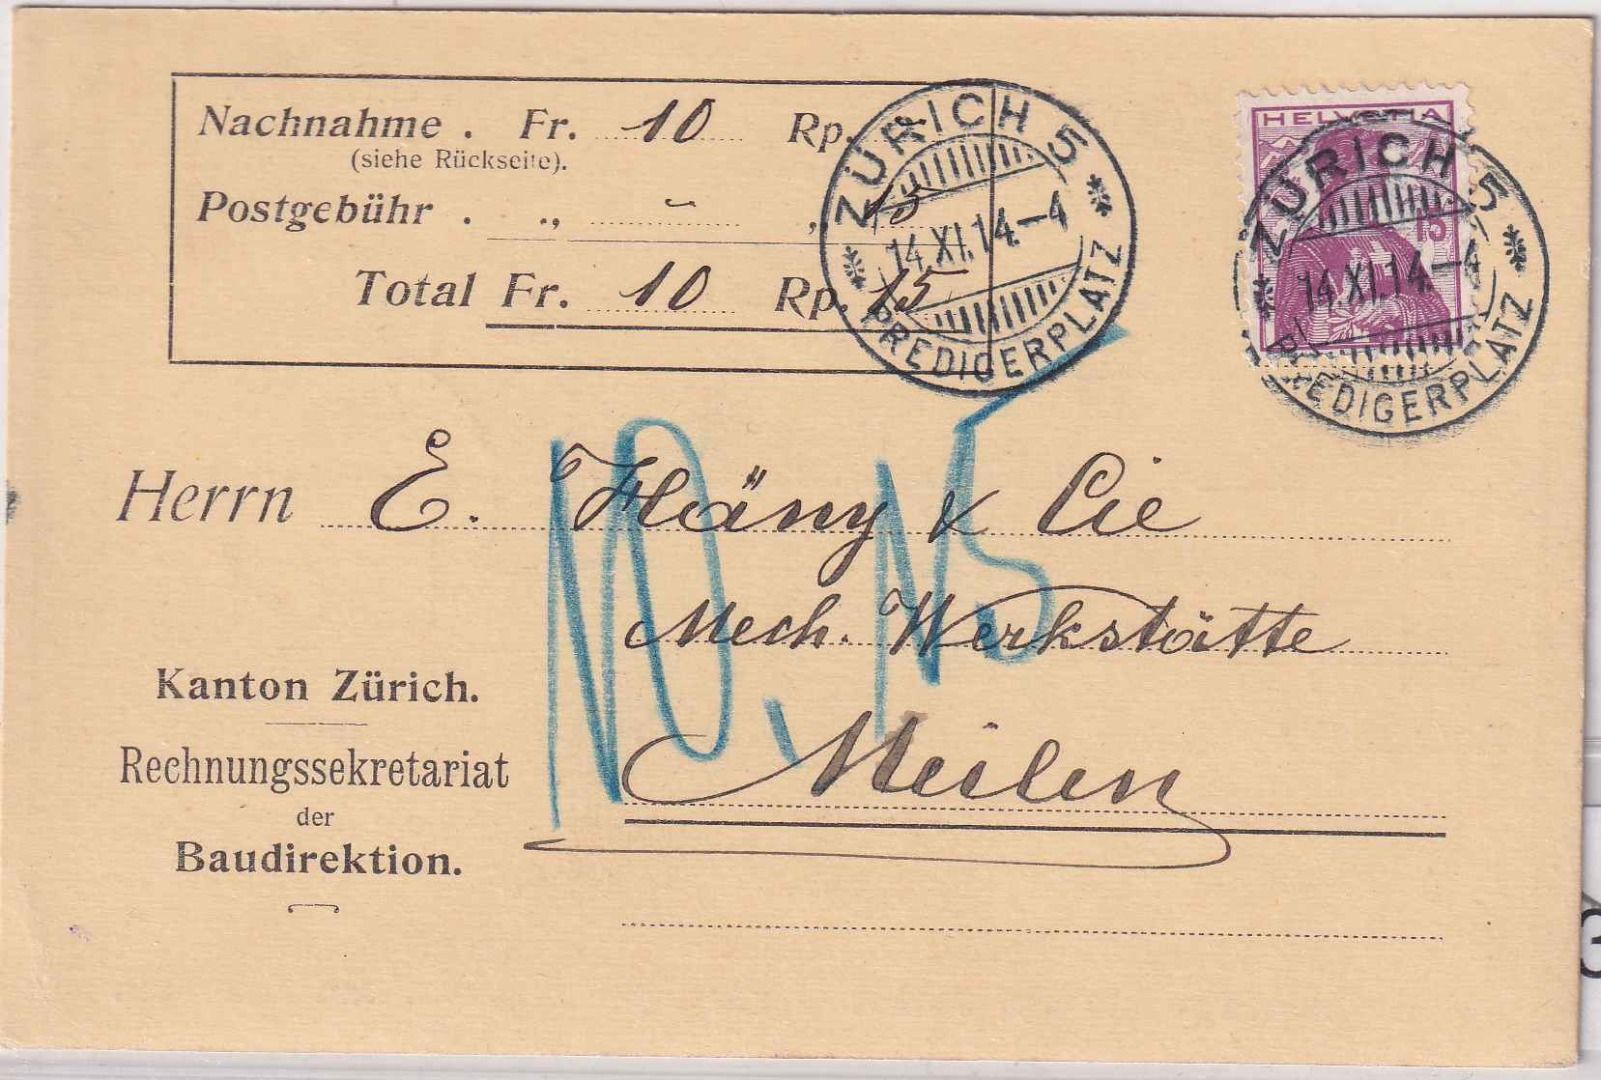 Nachnahme . Fr. 10 Rp. –
(siehe Rückseite).
Postgebühr . „ – „ 15
Total Fr. 10 Rp. 15
ZÜRICH 5
14.XI.14.–4
PREDIGERPLATZ
HELVETIA
15
ZÜRICH 5
14.XI.14.–4
PREDIGERPLATZ
10.15
Herrn E. Häny & Cie
Mech. Werkstätte
Meilen
Kanton Zürich.
Rechnungssekretariat
der
Baudirektion.
3